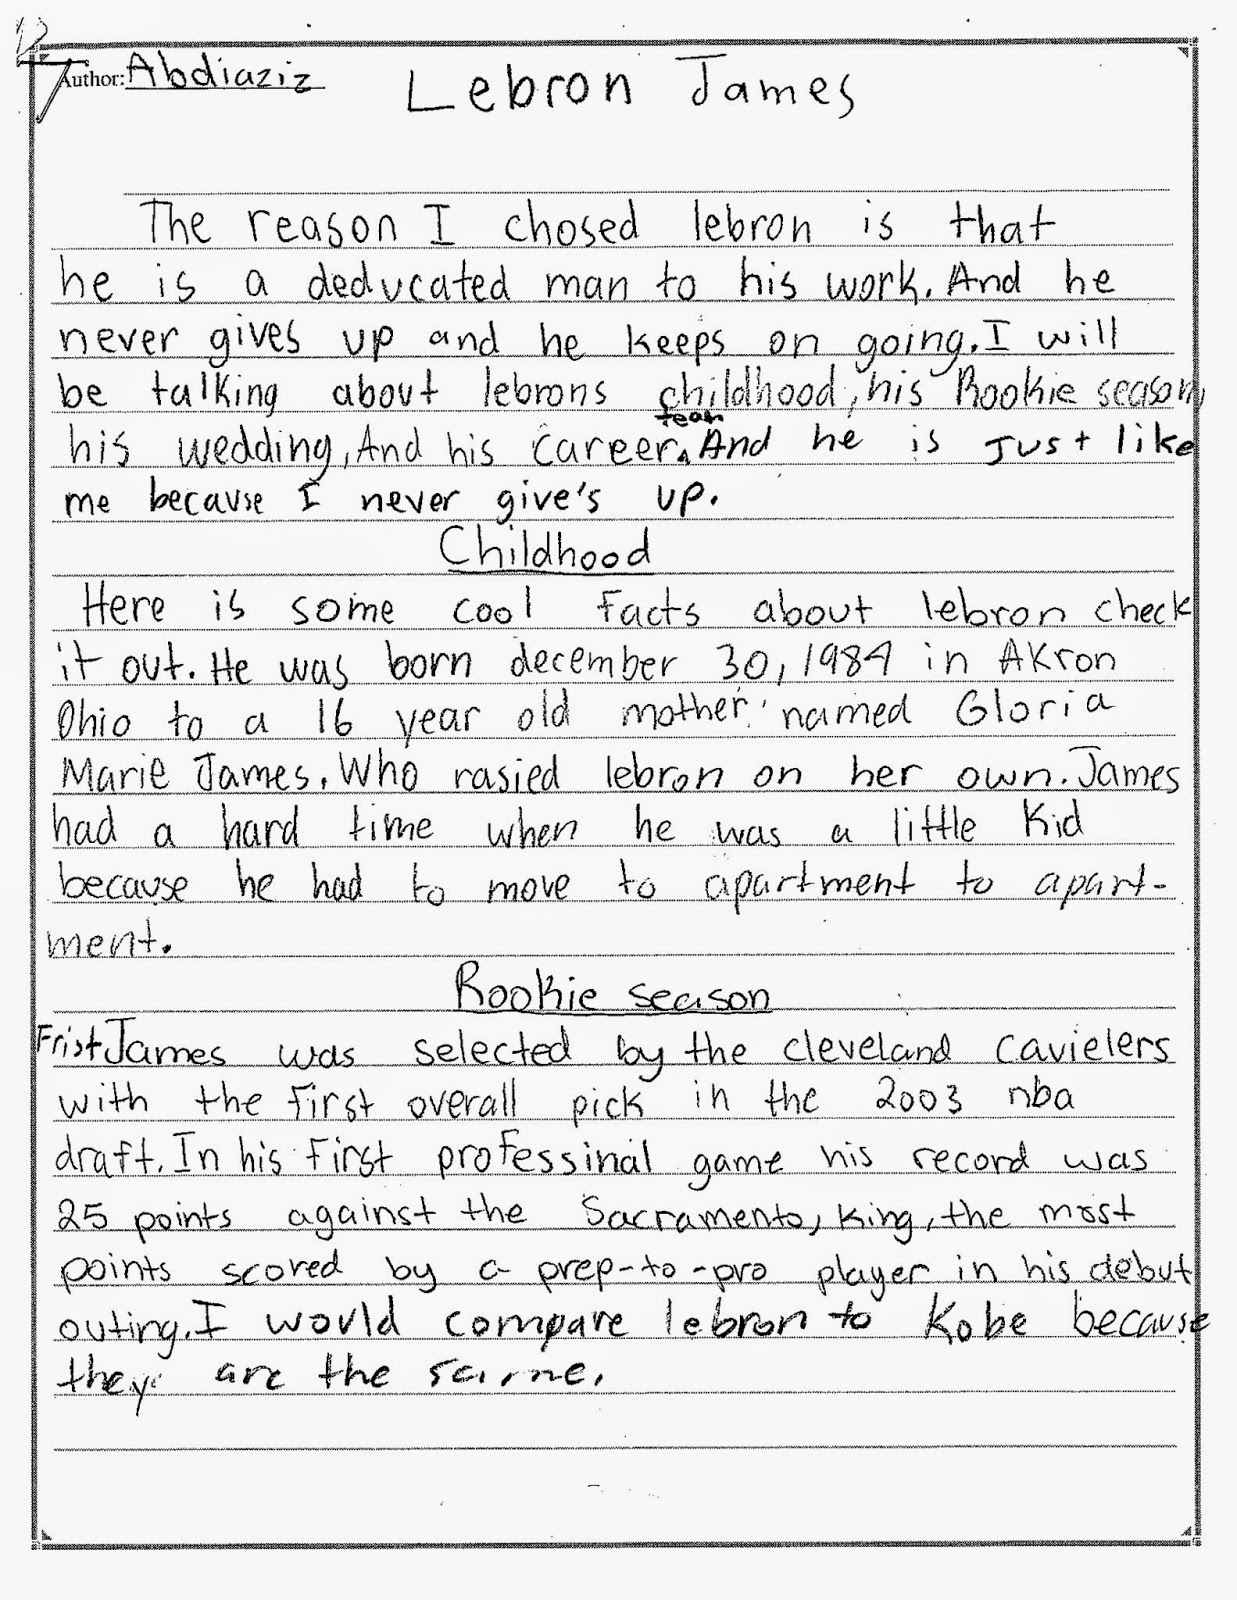 Author: Abdiaziz
Lebron James
The reason I chosed lebron is that
he is a deducated man to his work. And he
never gives up and he keeps on going. I will
be talking about lebrons childhood, his Rookie season,
his wedding, And his career team. And he is Just like
me because I never give's up.
Childhood
Here is some cool Facts about lebron check
it out. He was born december 30, 1984 in AKron
Ohio to a 16 year old mother named Gloria
Marie James. Who rasied lebron on her own. James
had a hard time when he was a little Kid
because he had to move to apartment to apart-
ment.
Rookie season
Frist James was selected by the cleveland cavielers
with the first overall pick in the 2003 nba
draft. In his First professinal game his record was
25 points against the Sacramento, King, the most
points scored by a prep-to-pro player in his debut
outing. I would compare lebron to Kobe because
they are the same.